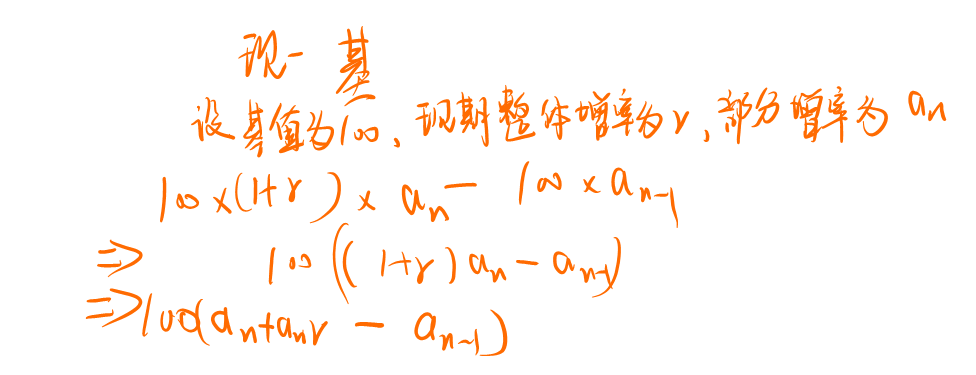 现-基
设基值为100,现期整体增率为r,部分增率为an
100×(1+r)×an-100×an-1
⇒100((1+r)an-an-1)
⇒100(an+anr-an-1)